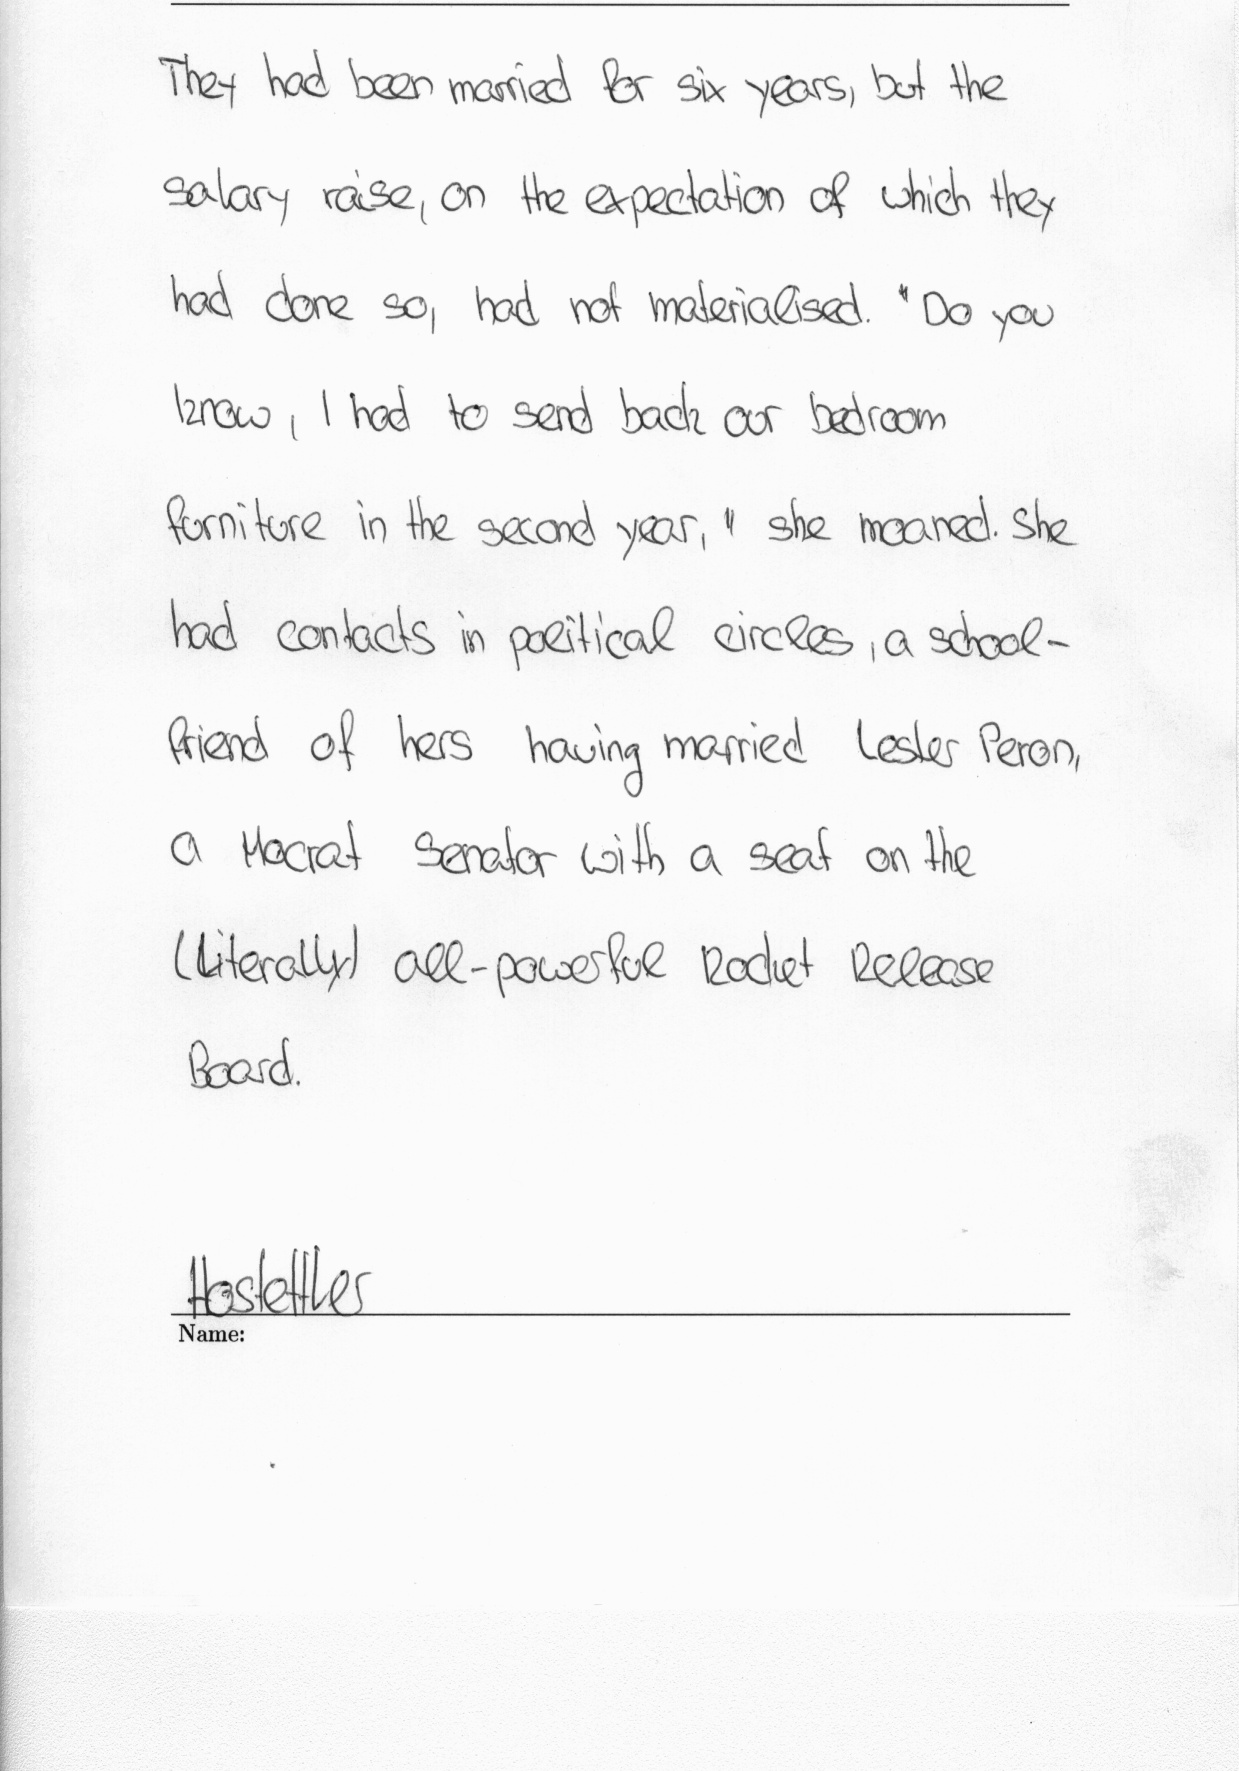 They had been married for six years, but the
salary raise, on the expectation of which they
had done so, had not materialised. "Do you
know, I had to send back our bedroom
furniture in the second year," she moaned. She
had contacts in political circles, a school-
friend of hers having married Lester Peron,
a Mocrat Senator with a seat on the
(Literally) all-powerful Rocket Release
Board.
Hostettler
Name: